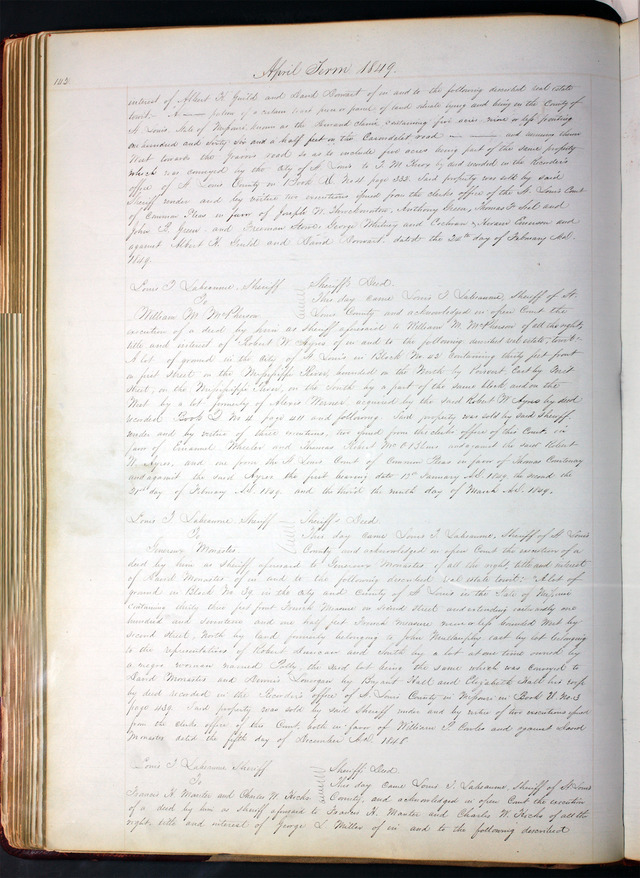 102
April Term 1849.
interest of Albert K Guild and David Bowart of in and to the following described real estate
towit: A portion of a certain tract piece or parcel of land situate lying and being in the County of
St Louis, State of Missouri, known as the claim containing five acres more or less fronting
one hundred and sixty six and a half feet on the Carondelet road and running thence
West towards the Gravois road so as to include five acres being part of the same property
which was conveyed by the City of St Louis to T. M. Kerr by deed recorded in the Recorder's
office of St Louis County in Book No 4 page 333. Said property was sold by said
Sheriff under and by virtue two executions issued from the clerks office of the St. Louis Court
of Common Pleas in favor of Joseph W. Throckmorton, Anthony Thomas F. and
John J. Green and Freeman George Whitney and Cochran and
against Albert K. Guild and David Bowart. dated the 24th day of February A.D.
1849.
Louis T Labeaume, Sheriff Sheriff's Deed.
To This day came Louis T Labeaume, Sheriff of St.
William M McPherson Louis County and acknowledged in open Court the
execution of a deed by him as Sheriff aforesaid to William M McPherson of all the right,
title and interest of Robert W Ayres of in and to the following described real estate, towit:
A lot of ground in the City of St Louis in Block No 42 Containing thirty feet front
on first street on the Mississippi River, bounded on the North by East by first
street, on the Mississippi River, on the South by a part of the same block and on the
West by a lot formerly of Alexis acquired by the said Robert W Ayres by deed
recorded Book No 4 page 411 and following. Said property was sold by said Sheriff
under and by virtue of three executions, two issued from the clerks office of this Court, in
favor of Emanuel Wheeler and Thomas Robert and against the said Robert
W Ayres, and one from the St Louis Court of Common Pleas in favor of Thomas Courtenay
and against the said Ayres the first bearing date 13th January A.D. 1849, the second the
21st day of February A.D. 1849, and the third the ninth day of March A.D. 1849.
Louis T Labeaume Sheriff Sheriff's Deed.
To This day came Louis T. Labeaume, Sheriff of St Louis
Genereux Monastes County and acknowledged in open Court the execution of a
deed by him as Sheriff aforesaid to Genereux Monastes of all the right, title and interest
of David Monastes of in and to the following described real estate towit: A lot of
ground in Block No 39 in the City and County of St Louis in the State of Missouri
containing thirty three feet front French Measure on Second street and extending eastwardly one
hundred and seventeen and one half feet French measure more or less bounded West by
second street, North by land formerly belonging to John Mullanphy east by lot belonging
to the representatives of Robert Duncan and South by a lot at one time owned by
a negro woman named Polly, the said lot being the same which was conveyed to
David Monastes and Dennis Lonergan by Bryant Hall and Elizabeth Hall his wife
by deed recorded in the Recorder's office of St. Louis County in Missouri in Book U. No. 3
page 439. Said property was sold by said Sheriff under and by virtue of two executions issued
from the clerks office of this Court, both in favor of William P. Carlos and against David
Monastes, dated the fifth day of December A.D. 1848
Louis T Labeaume Sheriff Sheriff's Deed
To This day came Louis T. Labeaume, Sheriff of St Louis
Francis K. Manter and Charles W. Hicks County, and acknowledged in open Court the execution
of a deed by him as Sheriff aforesaid to Francis K. Manter and Charles W. Hicks of all the
right, title and interest of George S. Miller of in and to the following described